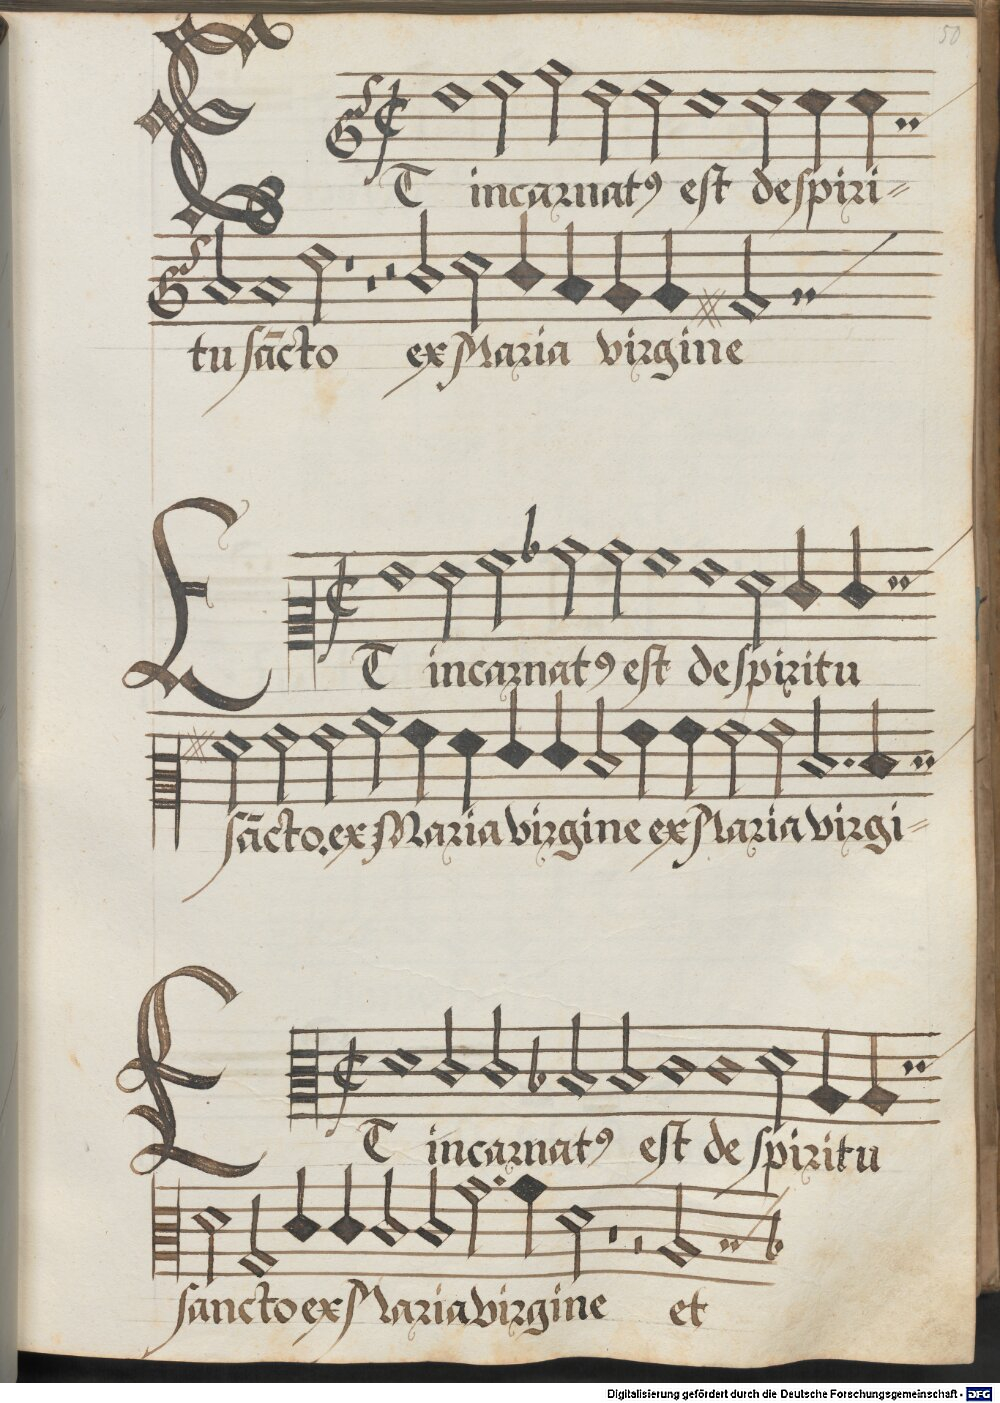 50
ET incarnatꝰ est despiri=
tu sācto ex Maria virgine
ET incarnatꝰ est despiritu
sācto. ex Maria virgine ex Maria virgi=
ET incarnatꝰ est de spiritu
sancto ex Maria virgine et
Digitalisierung gefördert durch die Deutsche Forschungsgemeinschaft - DFG